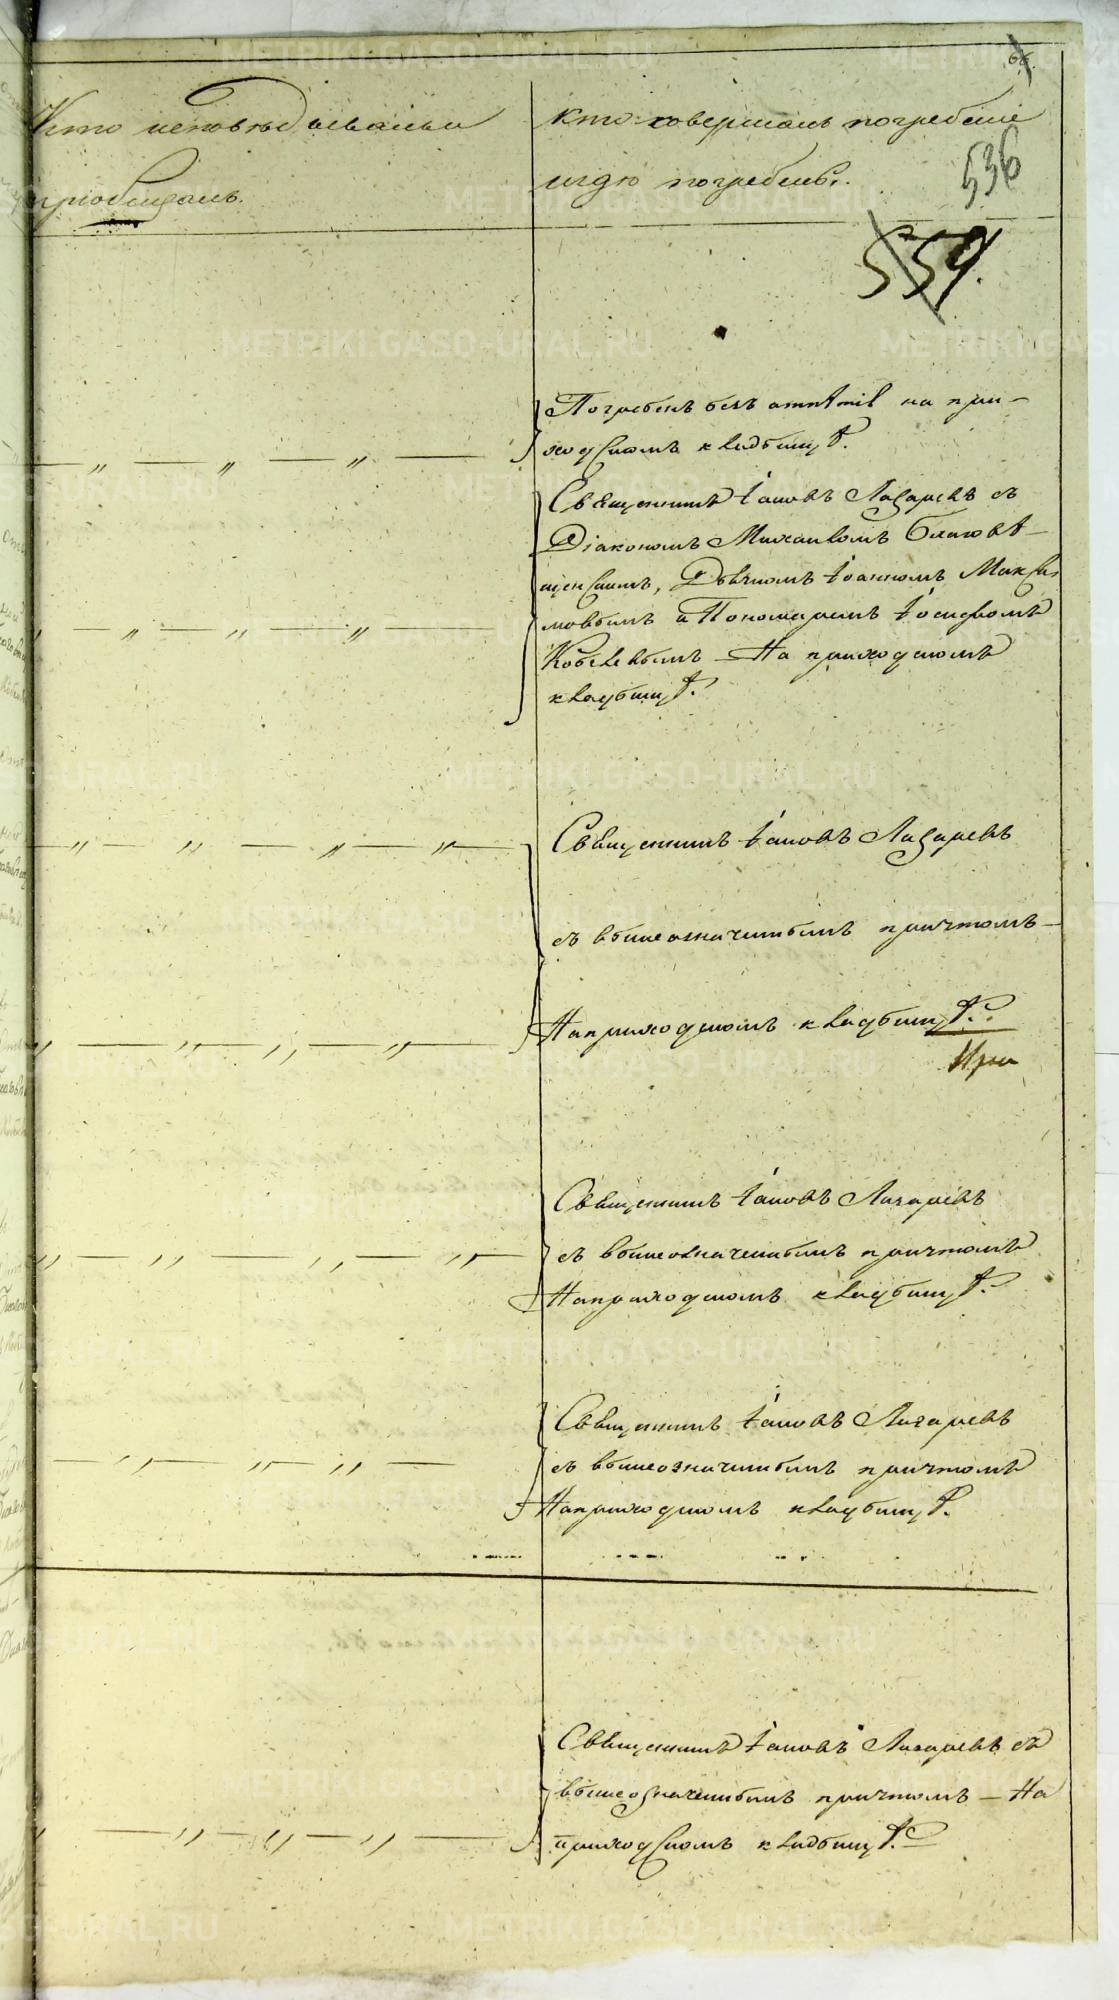 Кто исповѣдывалъ и
пріобщалъ.
кто совершалъ погребеніе
и гдѣ погребены.
536
559.
Погребенъ безъ отпѣтія на при-
ходскомъ кладбищѣ.
Священникъ Іаковъ Лазаревъ съ
Діакономъ Михаиломъ Благовѣ-
щенскимъ, Дьячкомъ Іоанномъ Макси-
мовымъ и Пономаремъ Іосифомъ
На приходскомъ
кладбищѣ.
Священникъ Іаковъ Лазаревъ
съ вышеозначеннымъ причтомъ-
На приходскомъ кладбищѣ.
При
Священникъ Іаковъ Лазаревъ
съ вышеозначеннымъ причтомъ
На приходскомъ кладбищѣ.
Священникъ Іаковъ Лазаревъ
съ вышеозначеннымъ причтомъ
На приходскомъ кладбищѣ.
Священникъ Іаковъ Лазаревъ съ
вышеозначеннымъ причтомъ - На
приходскомъ кладбищѣ.
METRIKI.GASO-URAL.RU